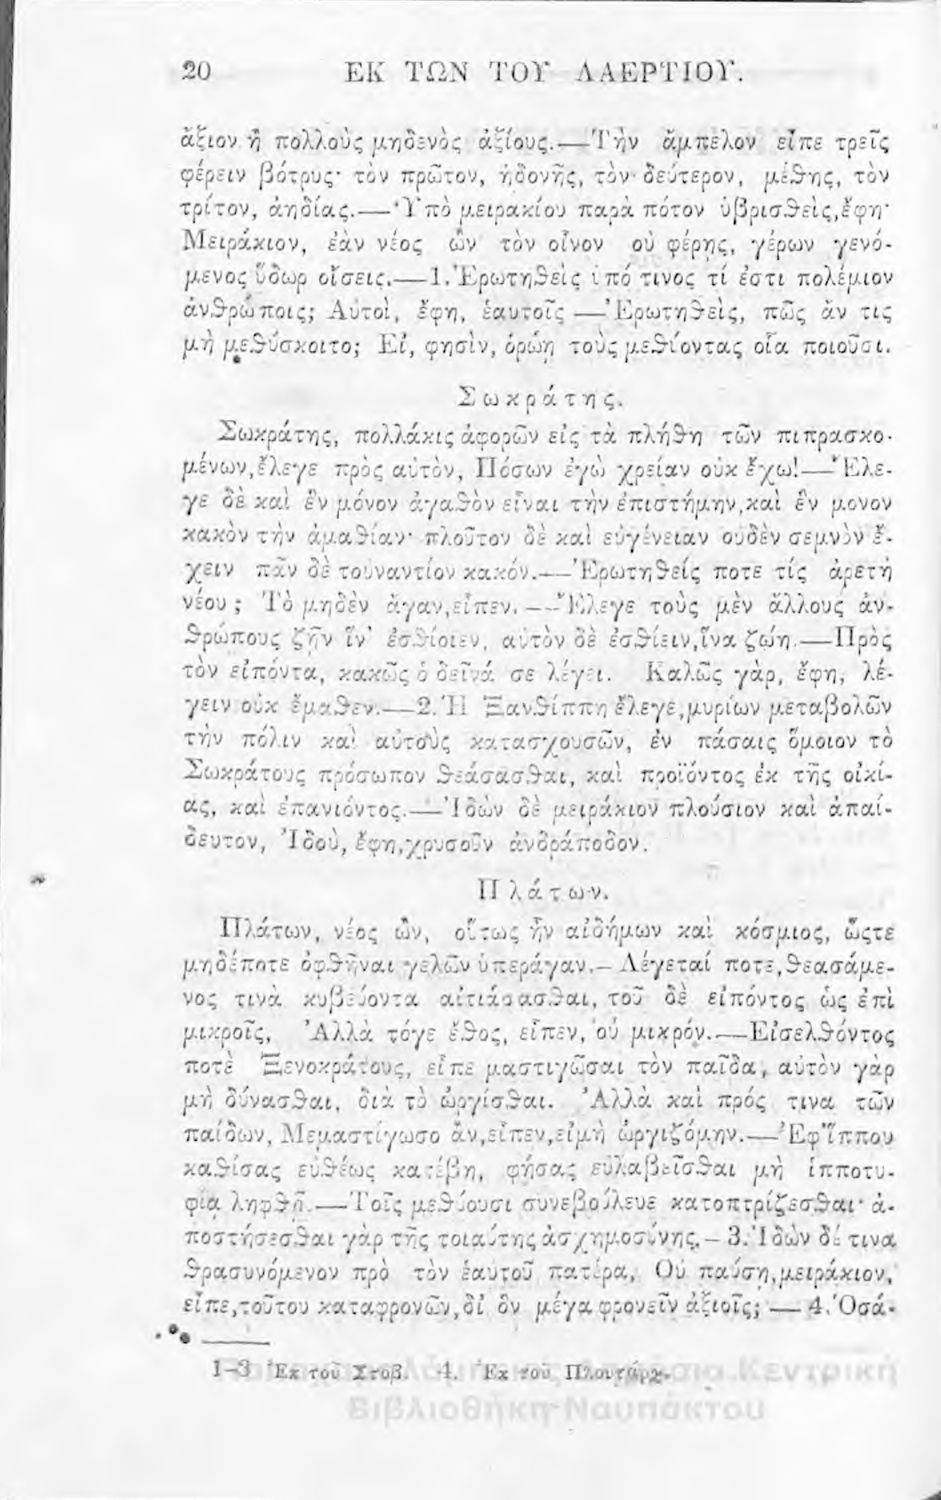 20 ΕΚ ΤΩΝ ΤΟΥ ΛΑΕΡΤΙΟΥ.
ἄξιον ἢ πολλοὺς μηδενὸς ἀξίους.—Τὴν ἄμπελον εἶπε τρεῖς
φέρειν βότρυς· τὸν πρῶτον, ἡδονῆς, τὸν δεύτερον, μέθης, τὸν
τρίτον, ἀηδίας.—Ὑπὸ μειρακίου παρὰ πότον ὑβρισθεὶς,ἔφη·
Μειράκιον, ἐὰν νέος ὢν τὸν οἶνον οὐ φέρῃς, γέρων γενό-
μενος ὕδωρ οἴσεις.—1. Ἐρωτηθεὶς ὑπό τινος τί ἐστι πολέμιον
ἀνθρώποις; Αὐτοὶ, ἔφη, ἑαυτοῖς —Ἐρωτηθεὶς, πῶς ἄν τις
μὴ μεθύσκοιτο; Εἰ, φησὶν, ὁρῴη τοὺς μεθύοντας οἷα ποιοῦσι.
Σωκράτης.
Σωκράτης, πολλάκις ἀφορῶν εἰς τὰ πλήθη τῶν πιπρασκο-
μένων,ἔλεγε πρὸς αὑτὸν, Πόσων ἐγὼ χρείαν οὐκ ἔχω!—Ἔλε-
γε δὲ καὶ ἓν μόνον ἀγαθὸν εἶναι τὴν ἐπιστήμην,καὶ ἓν μονον
κακὸν τὴν ἀμαθίαν· πλοῦτον δὲ καὶ εὐγένειαν οὐδὲν σεμνὸν ἔ-
χειν πᾶν δὲ τοὐναντίον κακόν.—Ἐρωτηθείς ποτε τίς ἀρετὴ
νέου ; Τὸ μηδὲν ἄγαν,εἶπεν.—Ἔλεγε τοὺς μὲν ἄλλους ἀν-
θρώπους ζῆν ἵν' ἐσθίοιεν, αὑτὸν δὲ ἐσθίειν,ἵνα ζῴη.—Πρὸς
τὸν εἰπόντα, κακῶς ὁ δεῖνά σε λέγει. Καλῶς γὰρ, ἔφη, λέ-
γειν οὐκ ἔμαθεν.—2. Ἡ Ξανθίππη ἔλεγε,μυρίων μεταβολῶν
τὴν πόλιν καὶ αὐτοὺς κατασχουσῶν, ἐν πάσαις ὅμοιον τὸ
Σωκράτους πρόσωπον θεάσασθαι, καὶ προϊόντος ἐκ τῆς οἰκί-
ας, καὶ ἐπανιόντος.—Ἰδὼν δὲ μειράκιον πλούσιον καὶ ἀπαί-
δευτον, Ἰδοὺ, ἔφη,χρυσοῦν ἀνδράποδον.
Πλάτων.
Πλάτων, νέος ὢν, οὕτως ἦν αἰδήμων καὶ κόσμιος, ὥςτε
μηδέποτε ὀφθῆναι γελῶν ὑπεράγαν.— Λέγεταί ποτε,θεασάμε-
νος τινὰ κυβεύοντα αἰτιάσασθαι, τοῦ δὲ εἰπόντος ὡς ἐπὶ
μικροῖς, Ἀλλὰ τόγε ἔθος, εἶπεν, οὐ μικρόν.—Εἰσελθόντος
ποτὲ Ξενοκράτους, εἶπε μαστιγῶσαι τὸν παῖδα, αὐτὸν γὰρ
μὴ δύνασθαι, διὰ τὸ ὠργίσθαι. Ἀλλὰ καὶ πρός τινα τῶν
παίδων, Μεμαστίγωσο ἂν,εἶπεν,εἰμὴ ὠργιζόμην.—Ἐφ' ἵππου
καθίσας εὐθέως κατέβη, φήσας εὐλαβεῖσθαι μὴ ἱπποτυ-
φίᾳ ληφθῇ.—Τοῖς μεθύουσι συνεβούλευε κατοπτρίζεσθαι· ἀ-
ποστήσεσθαι γὰρ τῆς τοιαύτης ἀσχημοσύνης.— 3. Ἰδὼν δέ τινα
θρασυνόμενον πρὸ τὸν ἑαυτοῦ πατέρα, Οὐ παύσῃ,μειράκιον,
εἶπε,τούτου καταφρονῶν,δι' ὃν μέγα φρονεῖν ἀξιοῖς; — 4. Ὁσά-
1—3 Ἐκ τοῦ Στοβ. 4. Ἐκ τοῦ Πλουτάρχ.
Κεντρική
Βιβλιοθήκη Ναυπάκτου